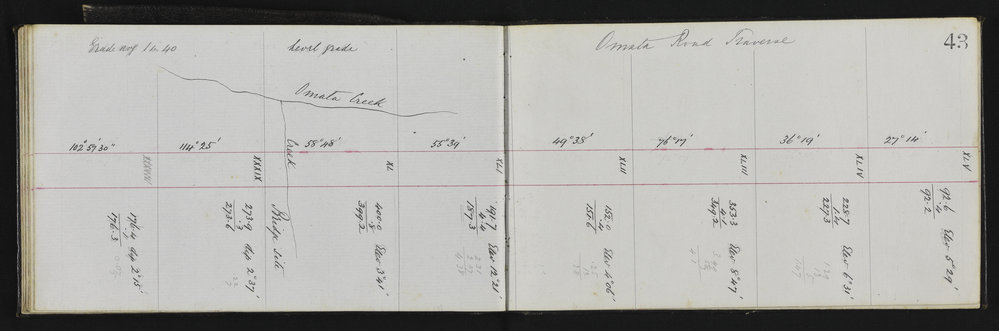 Grade avg 1 in 40
Level grade
Omata Road Traverse
43
Omata Creek
Creek
102° 59' 30"
114° 25'
58° 48'
55° 39'
49° 38'
76° 17'
36° 19'
27° 14'
XXXVIII
XXXIX
XL
XLI
XLII
XLIII
XLIV
XLV
176.4 dep 2° 15'
176.3
273.9 dep 2° 37'
.3
273.6
Bridge site
400.0 Elev 3° 41'
.8
399.2
191.7 Elev 12° 21'
4.4
187.3
Elev 4° 06'
.4
155.6
353.3 Elev 8° 47'
4.1
349.2
228.7 Elev 6° 31'
1.4
227.3
92.6 Elev 5° 29'
.4
92.2